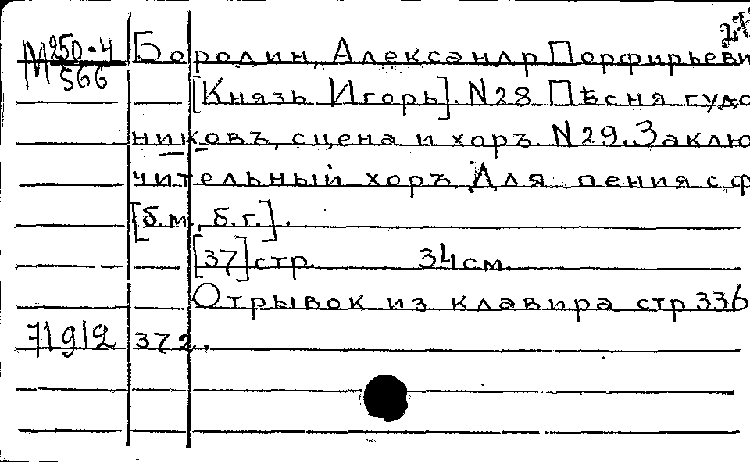 М 250-4 Бородин, Александр Порфирьеви
566
[Князь Игорь]. N28 Пѣсня гудо
никовъ, сцена и хоръ. N29. Заклю
чительный хоръ. Для пения с ф
[б.м., б.г.].
[37] стр. 34 см.
Отрывок из клавира стр 336
71912 372.